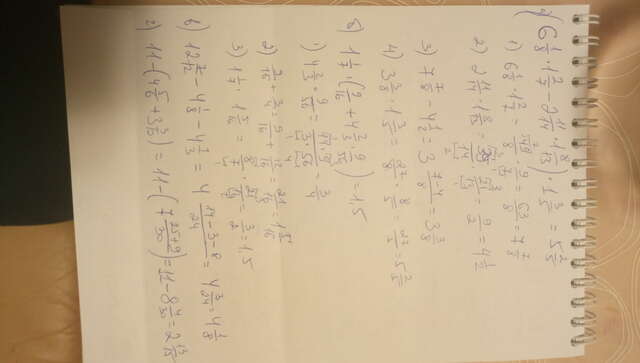 (6 1/8 · 1 2/7 − 2 11/14 · 1 8/13) · 1 3/5 = 5 2/5
1) 6 1/8 · 1 2/7 = 49/8 · 9/7 = 63/8 = 7 7/8
2) 2 11/14 · 1 8/13 = 39/14 · 21/13 = 9/2 = 4 1/2
3) 7 7/8 − 4 1/2 = 3 7−4/8 = 3 3/8
4) 3 3/8 · 1 3/5 = 27/8 · 8/5 = 27/5 = 5 2/5
1 1/7 · (9/16 + 4 2/3 · 9/56) = 1,5
1) 4 2/3 · 9/56 = 14 · 9/3 · 56 = 3/4
2) 9/16 + 3/4 = 9/16 + 12/16 = 21/16 = 1 5/16
3) 1 1/7 · 1 5/16 = 8/7 · 21/16 = 3/2 = 1,5
в) 12 7/12 − 4 1/8 − 4 1/3 = 4 14−3−8/24 = 4 3/24 = 4 1/8
г) 11 − (4 5/6 + 3 3/10) = 11 − (7 25+9/30) = 11 − 8 4/30 = 2 13/15